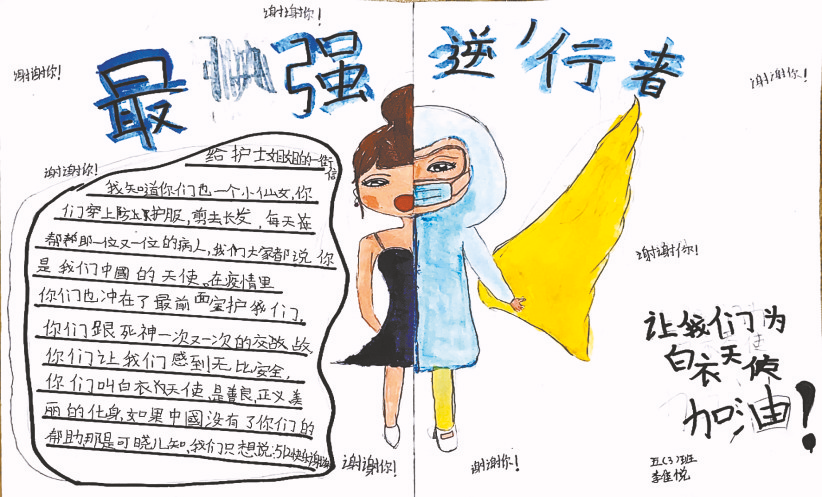 谢谢你!
最强 逆行者
谢谢你!
谢谢你!
谢谢你!
给护士姐姐的一信
我知道你们也一个小仙女,你
们穿上护服,剪去长发,每天在
帮助一位又一位的病人,我们大家都说你
是我们中國的天使。在疫情里
你们也冲在了最前面宝护我们,
你们跟死神一次又一次的交
你们让我们感到无比安全,
你们叫白衣天使,是善良,正义,美
丽的化身,如果中國没有了你们的
帮助那是可晓儿知,我们只想说:512快乐谢谢
谢谢你!
谢谢你!
谢谢你!
让我们为
白衣天使
加油!
五(3)班
李佳悦